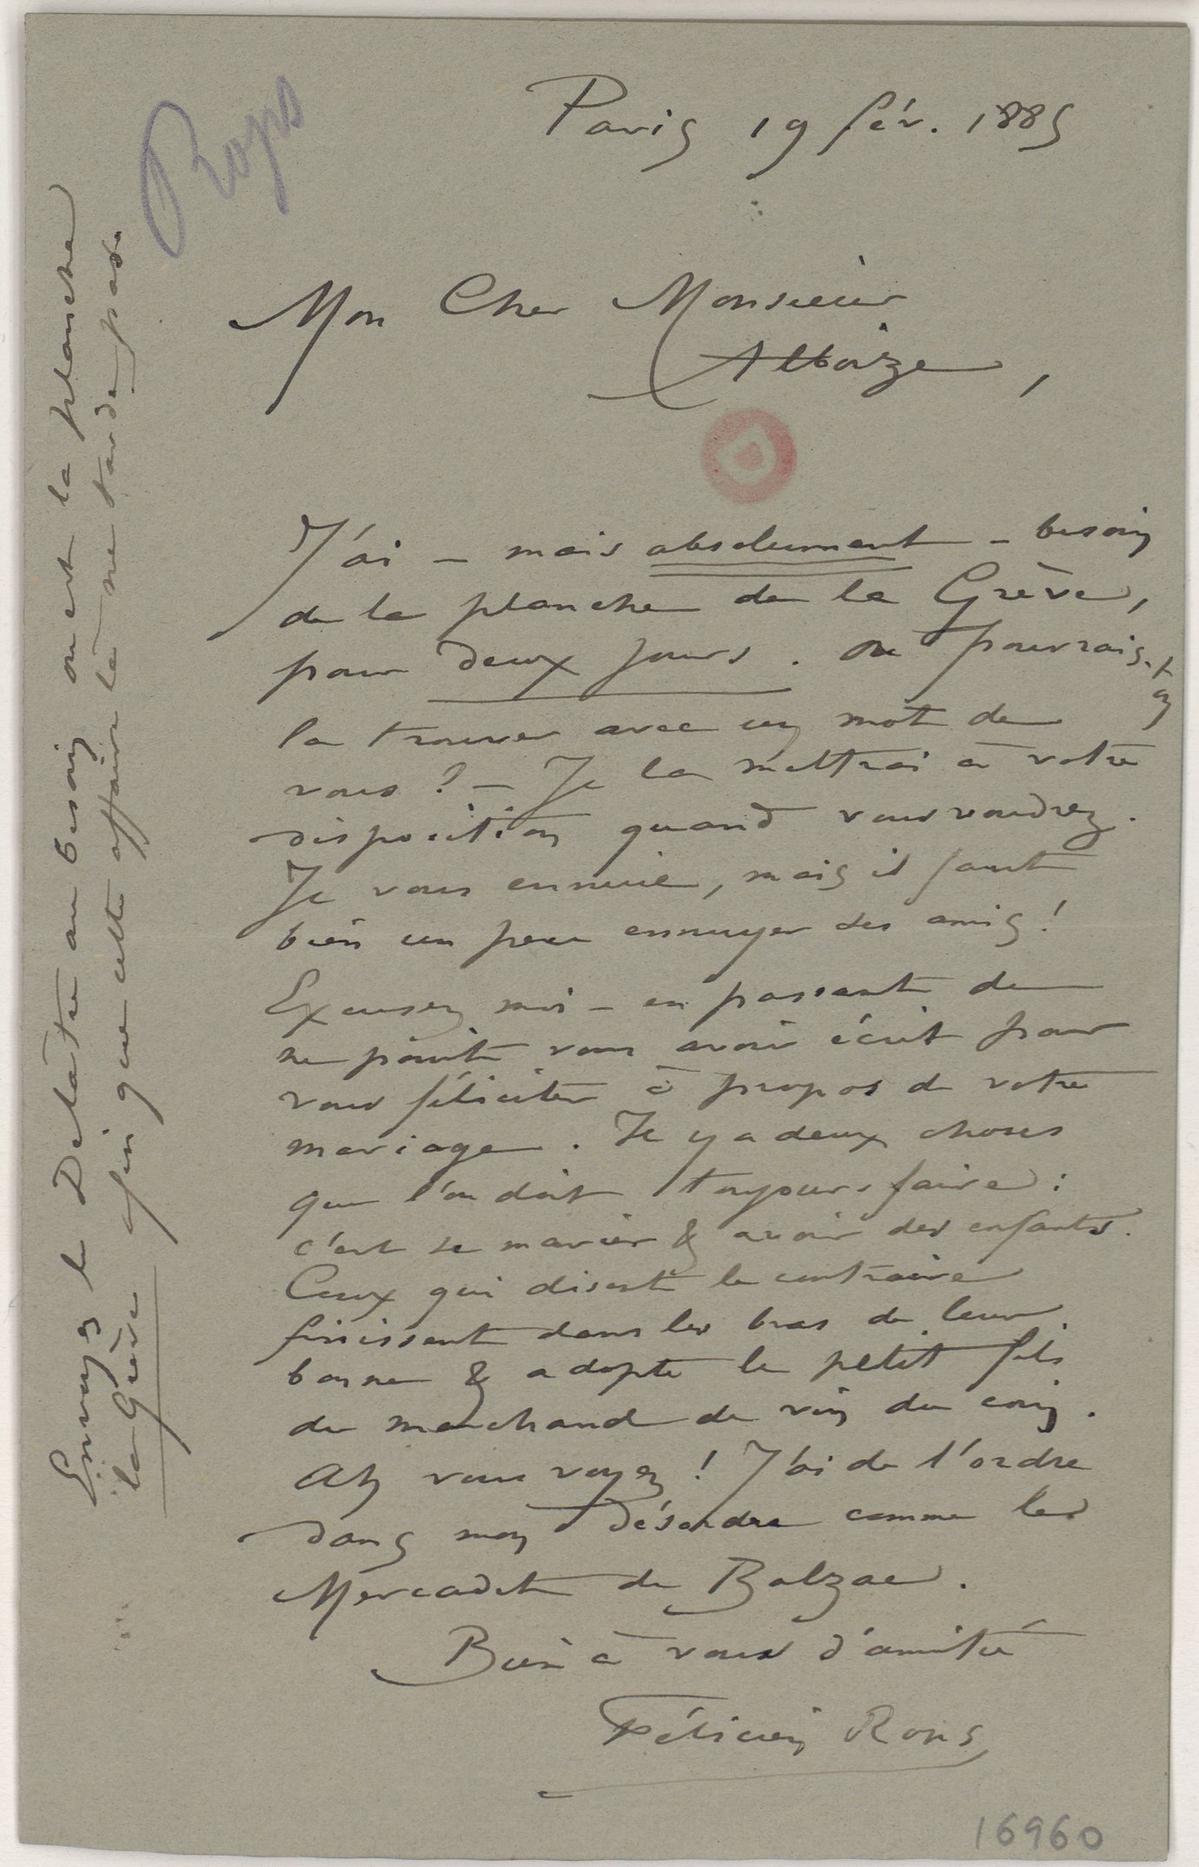 Rops
Paris 19 fév. 1885
Mon Cher Monsieur
Alboize,
J'ai – mais absolument – besoin
de la planche de la Grève,
pour deux jours. Où pourrais-je
la trouver avec un mot de
vous ? – Je la mettrai à votre
disposition quand vous voudrez.
Je vous ennuie, mais il faut
bien un peu ennuyer ses amis !
Excusez moi – en passant de
ne point vous avoir écrit pour
vous féliciter à propos de votre
mariage. Il y a deux choses
que l'on doit toujours faire :
c'est se marier & avoir des enfants.
Ceux qui disent le contraire
finissent dans les bras de leur
bonne & adopte le petit fils
du marchand de vin du coin.
Ah vous voyez ! J'ai de l'ordre
dans mon désordre comme le
Mercadet de Balzac.
Bien à vous d'amitié
Félicien Rops
16960
Envoyez le Delâtre au besoin où est la planche
la Grève afin que cette affaire là ne tarde pas.